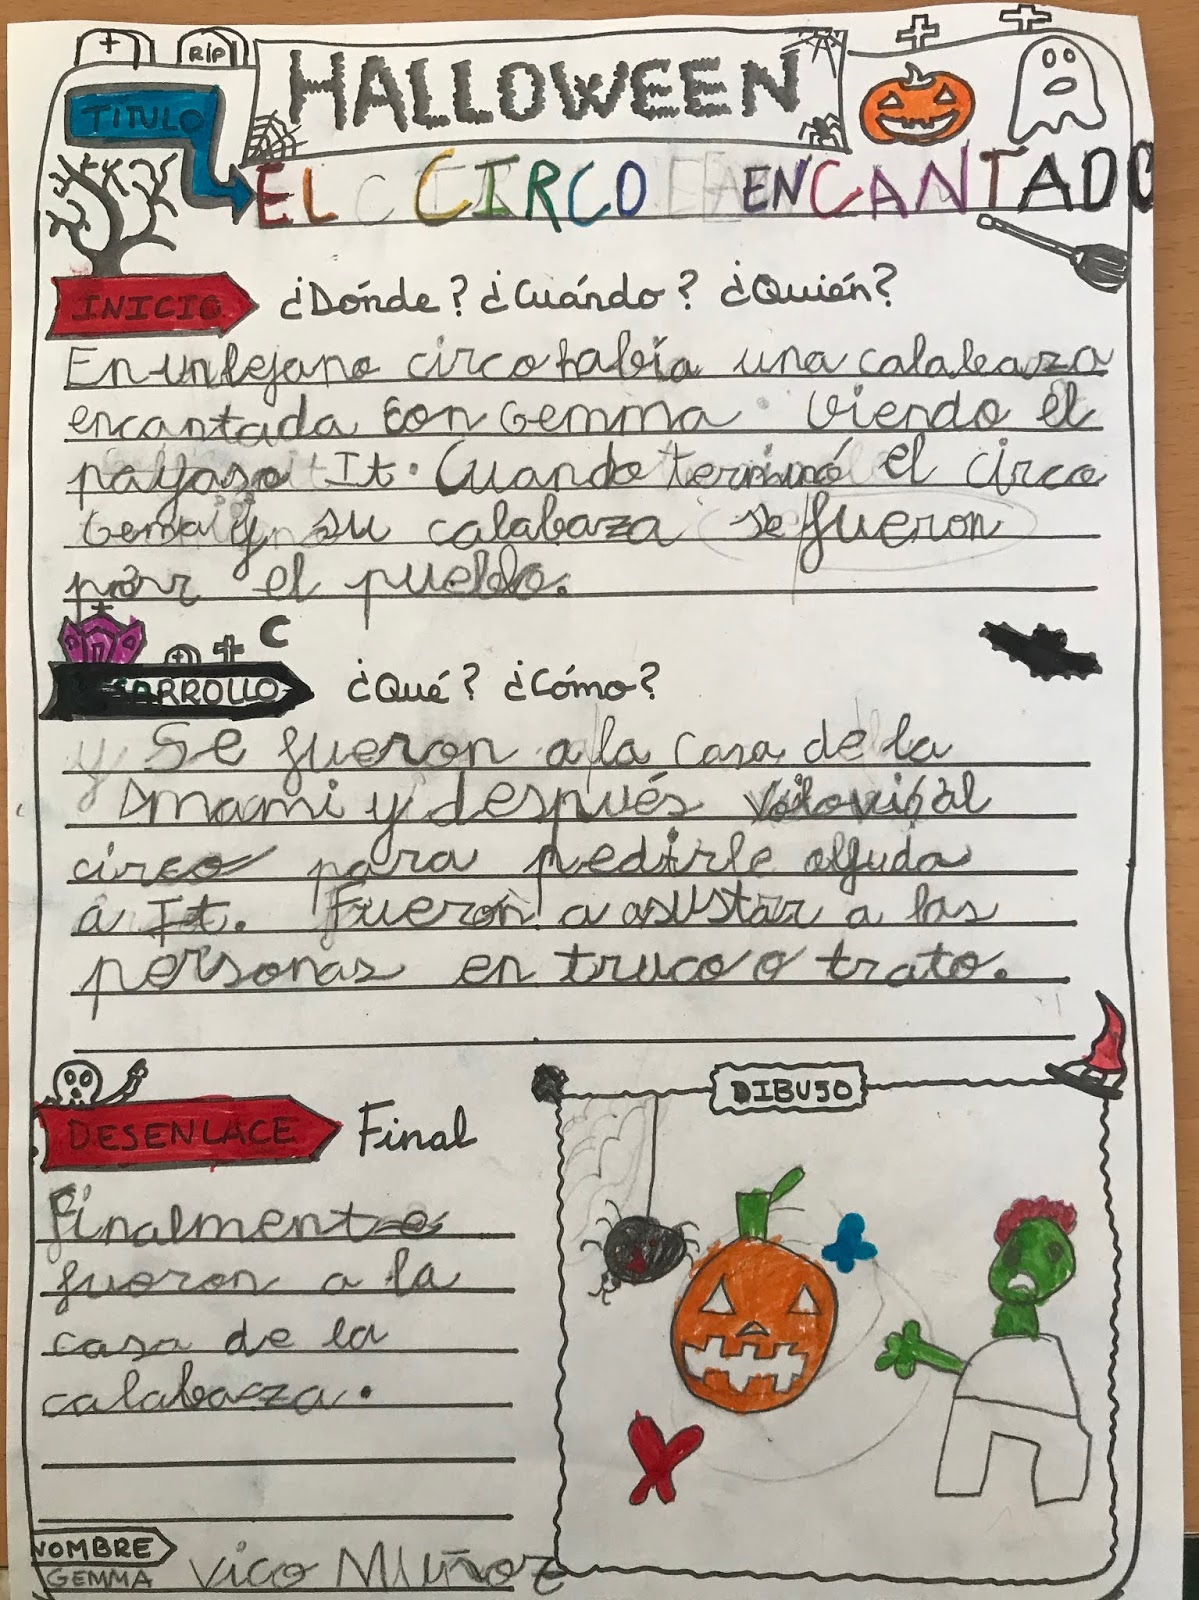 RIP
HALLOWEEN
TITULO
EL CIRCO ENCANTADO
INICIO ¿Dónde? ¿Cuándo? ¿Quién?
En un lejano circo había una calabaza
encantada con Gemma viendo el
payaso It. Cuando terminó el circo
Gema y su calabaza se fueron
por el pueblo.
DESARROLLO ¿Qué? ¿Cómo?
y Se fueron a la casa de la
mami y después al
circo para pedirle alguda
a It. Fueron a asustar a las
personas en truco o trato.
DESENLACE Final
DIBUJO
Finalmente
fueron a la
casa de la
calabaza.
NOMBRE
GEMMA Vico Muñoz